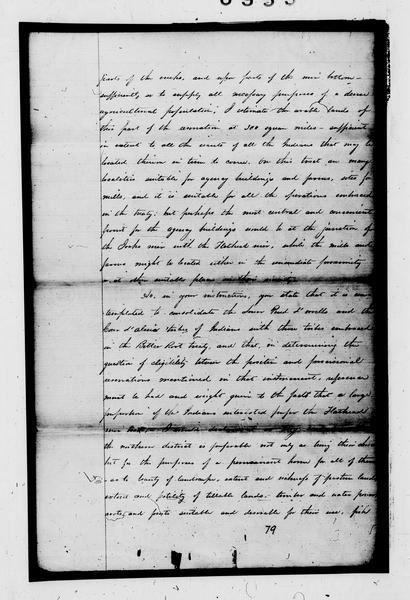 parts of the creeks, and upon parts of the river bottom
sufficiently so to supply all necessary purposes of a dense
agricultural population; I estimate the arable lands of
this part of the reservation at 300 square miles - sufficient
in extent to all the wants of all the Indians that may be
located thereon in time to come. On this tract are many
localities suitable for agency buildings and farms, sites for
mills, and it is suitable for all the operations embraced
in the treaty; but perhaps the most central and convenient
point for the agency buildings would be at the junction of
the Jocko river with the Flathead river, while the mills and
farms might be located either in the immediate proximity
or at other suitable places
3d. in your instructions, you state that it is con-
templated to consolidate the Lower Pend d'oreille and the
Coeur d'alene tribes of Indians with those tribes embraced
in the Bitter Root treaty, and that, in determining the
question of eligibility between the positive and provisional
reservations mentioned in that instrument, reference
must be had and weight given to the facts that a large
proportion of the Indians interested prefer the Flathead
the northern district is preferable not only as being their choice
but for the purposes of a permanent home for all of them
as to beauty of landscape, extent and richness of pasture land
extent and fertility of tillable lands. timber and water power
roots, and fruits suitable and desirable for their use, fish
79